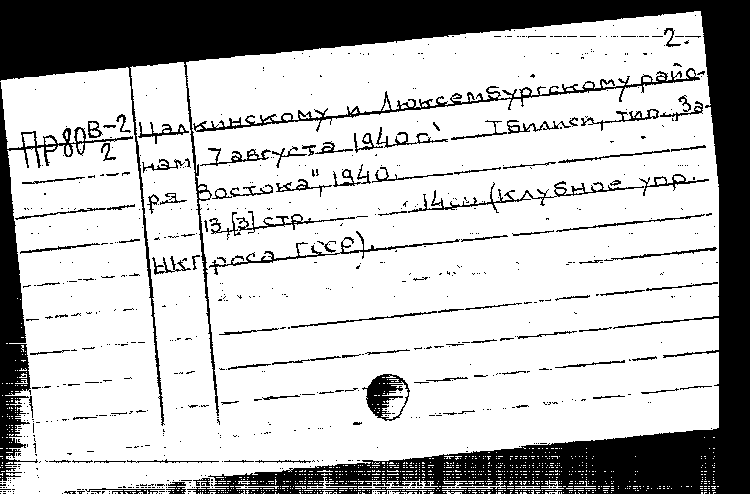 2.
Пр80 В-2/2
Цалкинскому и Люксембургскому райо-
нам, 7 августа 1940 г. Тбилиси, тип. „За-
ря Востока", 1940.
13,[3] стр. 14см (Клубное упр.
НКПроса ГССР).